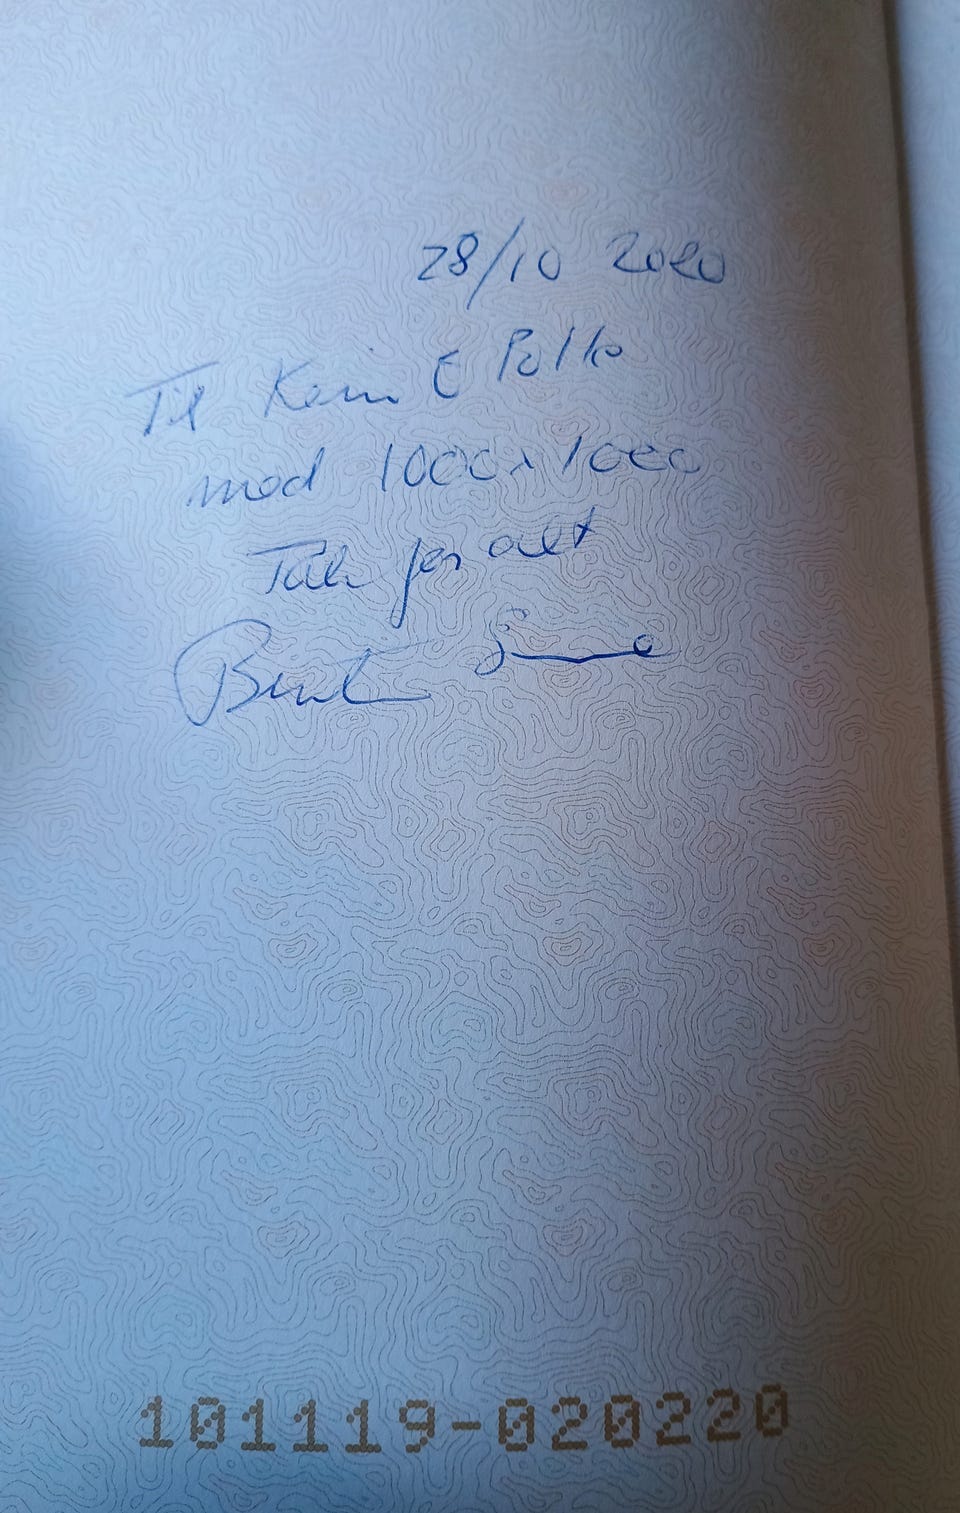 28/10 2020
Til Karin E Palle
med 1000 x 1000
Tak for alt
Bent
101119-020220